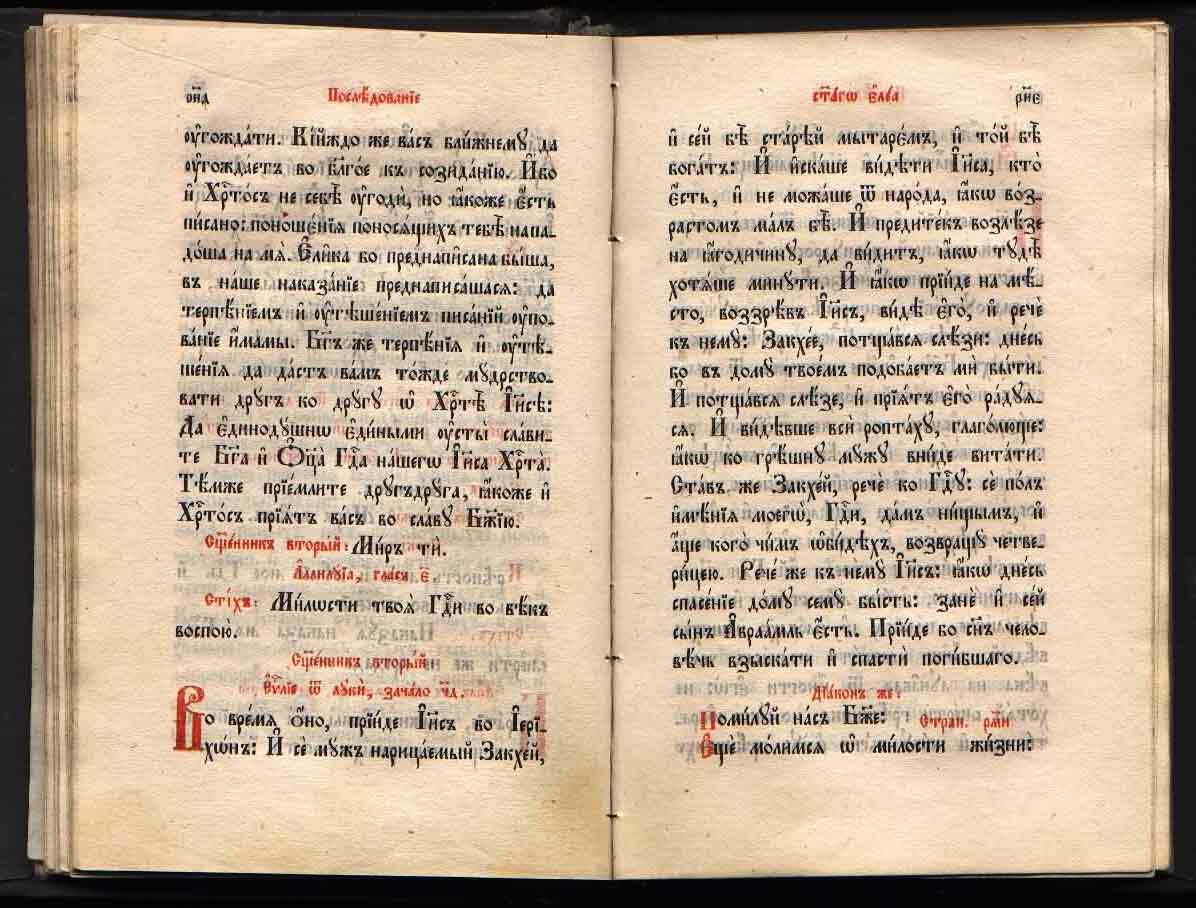 рн҃д
Послѣ́дованїе
ᲂу҆гожда́ти. Кі́йждо же ва́съ бли́жнемꙋ да
ᲂу҆гожда́етъ во бл҃го́е къ созида́нїю. И҆́бо
и҆ Хрⷭ҇то́съ не себѣ̀ ᲂу҆годѝ, но ꙗ҆́коже є҆́сть
пи́сано: поноше́нїѧ поносѧ́щихъ тебѣ̀ напа-
до́ша на мѧ̀. Є҆ли̑ка бо преднапи̑сана бы́ша,
въ на́ше наказа́нїе преднаписа́шасѧ: да
терпѣ́нїемъ и҆ ᲂу҆тѣше́нїемъ писа́нїй ᲂу҆по-
ва́нїе и҆́мамы. Бг҃ъ же терпѣ́нїѧ и҆ ᲂу҆тѣ-
ше́нїѧ да да́стъ ва́мъ то́жде мꙋ́дрство-
вати дрꙋ́гъ ко дрꙋ́гꙋ ѡ҆ Хрⷭ҇тѣ̀ І҆и҃сѣ:
Да є҆динодꙋ́шнѡ є҆ди́ными ᲂу҆сты̀ сла́ви-
те Бг҃а и҆ Ѻ҆ц҃а̀ Гдⷭ҇а на́шегѡ І҆и҃са Хрⷭ҇та̀.
Тѣ́мже прїе́млите дрꙋ́гъдрꙋ́га, ꙗ҆́коже и҆
Хрⷭ҇то́съ прїѧ́тъ ва́съ во сла́вꙋ Бж҃їю.
Сщ҃е́нникъ вторы́й: Ми́ръ тѝ.
А҆ллилꙋ́їа, гла́съ є҃
Сті́хъ: Ми́лѡсти твоѧ̑ Гдⷭ҇и во вѣ́къ
воспою̀.
Сщ҃е́нникъ вторы́й
Є҆ѵⷢ҇лїе ѿ лꙋкѝ, зача́ло ч҃д.
Во вре́мѧ ѻ҆́но, прїи́де І҆и҃съ во І҆ері-
хѡ́нъ: И҆ сѐ мꙋ́жъ нарица́емый Закхе́й,
ст҃а́гѡ є҆ле́а
рн҃е
и҆ се́й бѣ̀ старѣ́й мытарє́мъ, и҆ то́й бѣ̀
бога́тъ: И҆ и҆ска́ше ви́дѣти І҆и҃са, кто̀
є҆́сть, и҆ не можа́ше ѿ наро́да, ꙗ҆́кѡ во́з-
растомъ ма́лъ бѣ̀. И҆ предите́къ возлѣ́зе
на ꙗ҆годичинꙋ, да ви́дитъ, ꙗ҆́кѡ тꙋдѣ̀
хотѧ́ше минꙋ́ти. И҆ ꙗ҆́кѡ прїи́де на мѣ́-
сто, воззрѣ́въ І҆и҃съ, ви́дѣ є҆го̀, и҆ речѐ
къ немꙋ̀: Закхе́е, потща́всѧ слѣ́зи: дне́сь
бо въ домꙋ̀ твое́мъ подоба́етъ ми́ бы́ти.
И҆ потща́всѧ слѣ́зе, и҆ прїѧ́тъ є҆го̀ ра́дꙋѧ-
сѧ. И҆ ви́дѣвше всѝ ропта́хꙋ, глаго́люще:
ꙗ҆́кѡ ко грѣ́шнꙋ мꙋ́жꙋ вни́де вита́ти.
Ста́въ же Закхе́й, речѐ ко Гдⷭ҇ꙋ: сѐ по́лъ
и҆мѣ́нїѧ моегѡ̀, Гдⷭ҇и, да́мъ ни́щымъ, и҆
а҆́ще кого̀ чи́мъ ѡ҆би́дѣхъ, возвращꙋ̀ четве-
ри́цею. Рече́ же къ немꙋ̀ І҆и҃съ: ꙗ҆́кѡ дне́сь
спасе́нїе до́мꙋ семꙋ̀ бы́сть: занѐ и҆ се́й
сы́нъ А҆враа́мль є҆́сть. Прїи́де бо сн҃ъ чело-
вѣ́чь взыска́ти и҆ спастѝ поги́бшаго.
Дїа́конъ же:
Поми́лꙋй на́съ Бж҃е: Стран. рм҃и
Є҆щѐ мо́лимсѧ ѡ҆ ми́лости жи́зни: